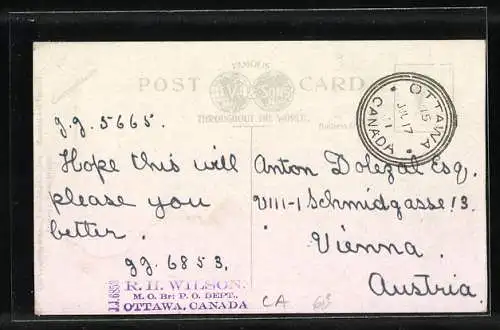 FAMOUS
POST CARD
& SONS
THROUGHOUT THE WORLD.
OTTAWA
15
JUL 17
11
CANADA
g.g. 5665.
Hope this will
please you
better.
gg. 6853.
Anton Dolezal Esq.
VIII-1 Schmidgasse 13.
Vienna.
Austria.
R. H. WILSON.
M. O. Br: P. O. DEPT.,
OTTAWA, CANADA
CA